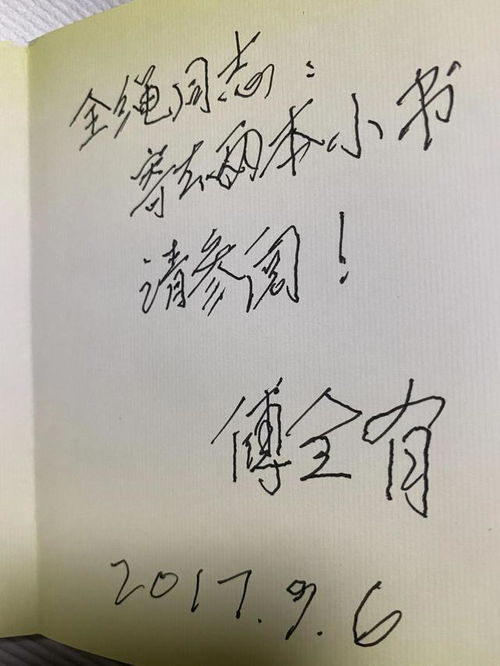 全绳同志：
寄去两本小书
请参阅！
傅全有
2017.9.6